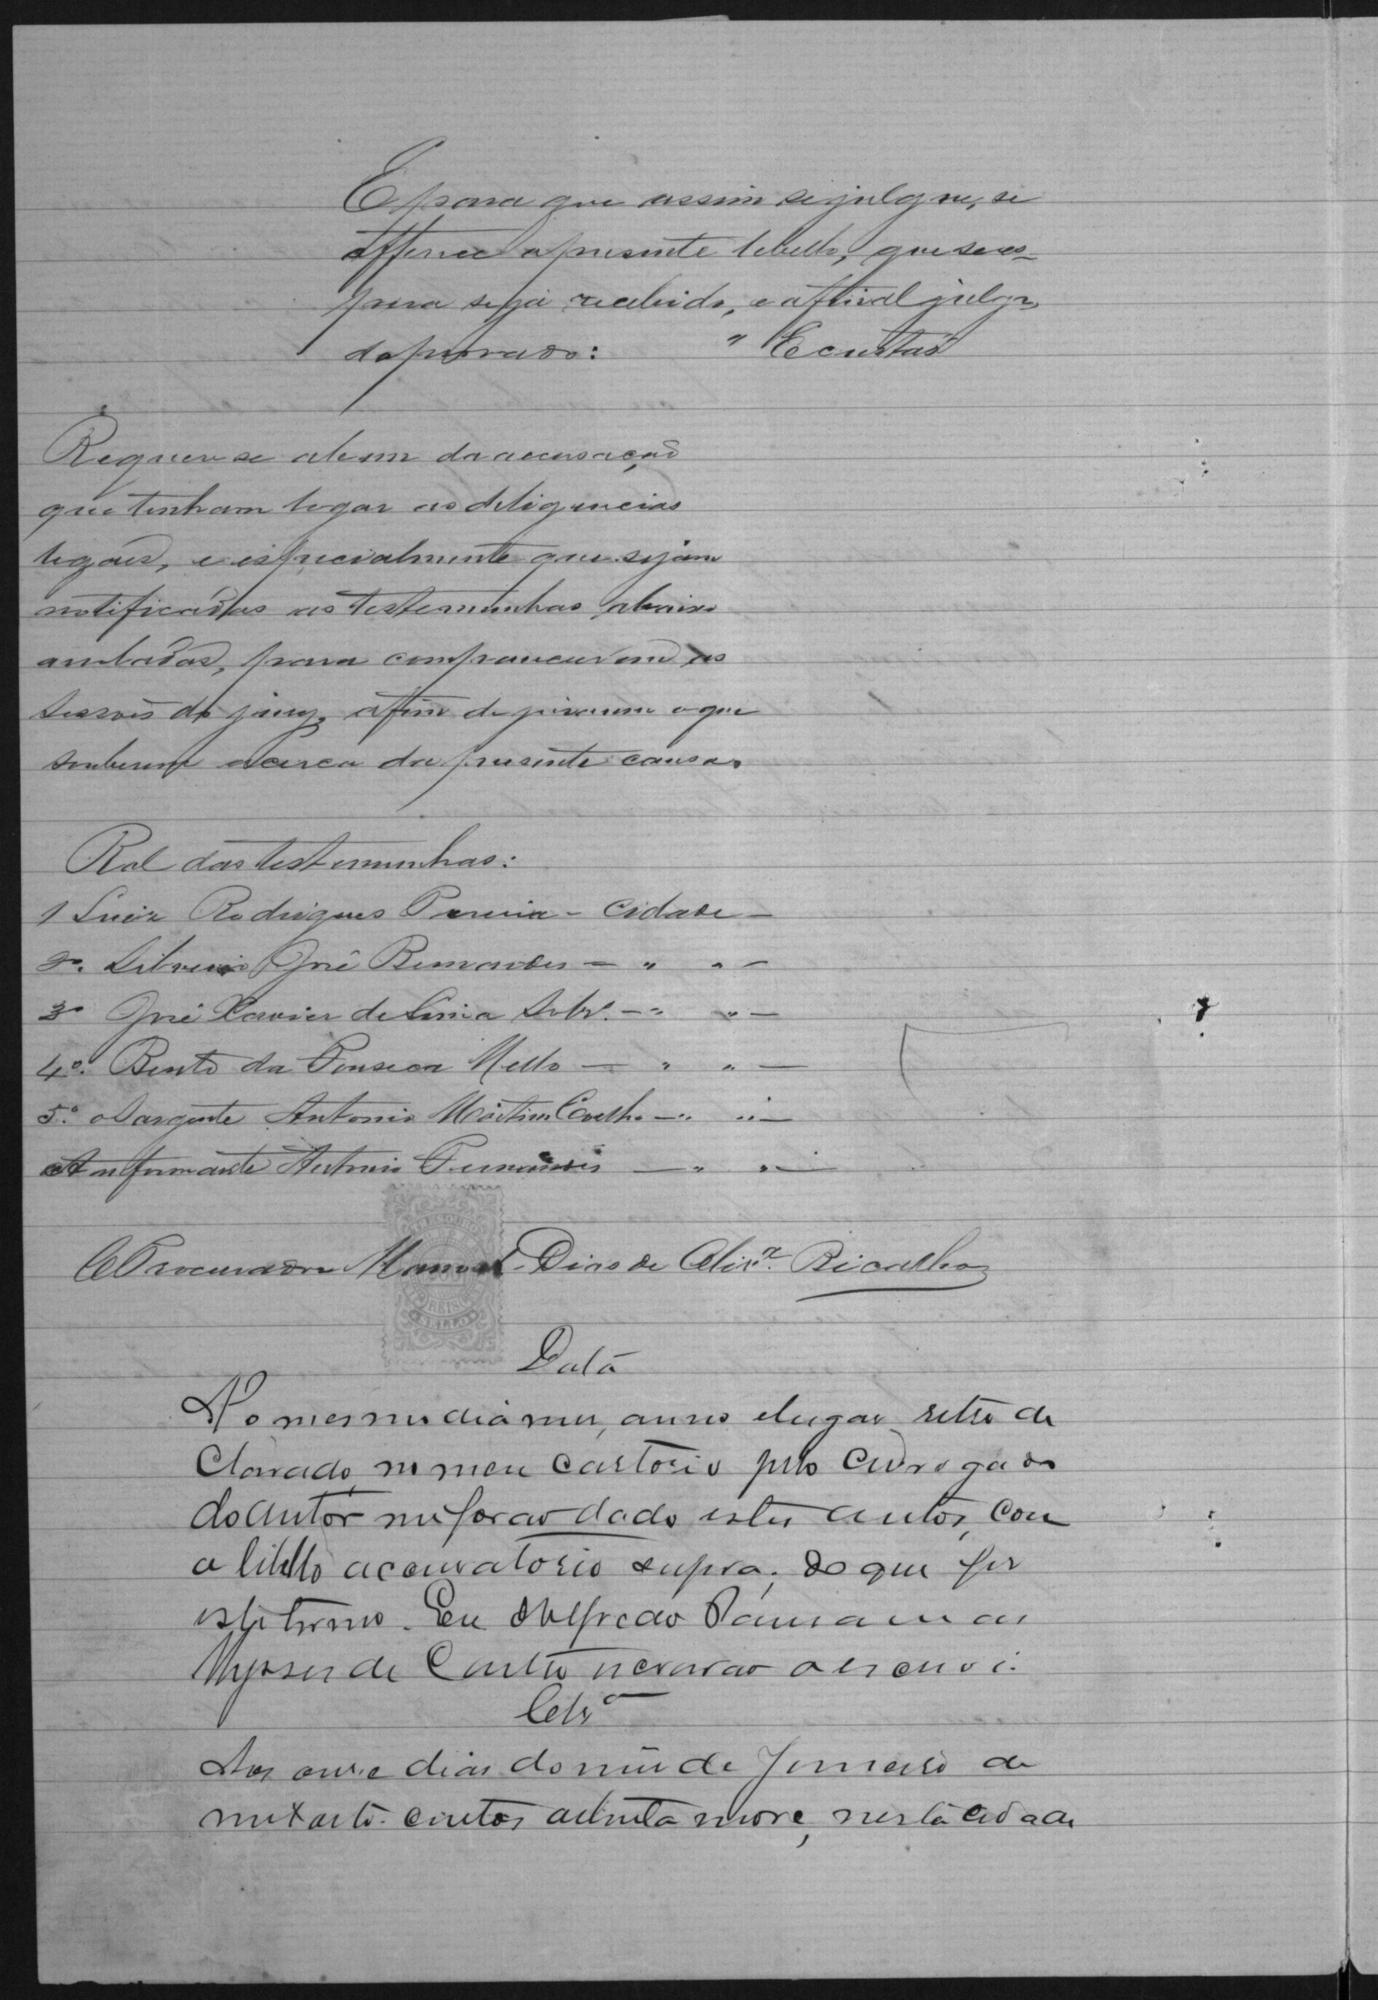 E para que assim se julgue, se
offerece o presente libello, que se es-
pera seja recebido, e afinal julga
do provado: " E custas
Requer se a bem da accusação
que tenham logar as deligencias
legaes, e especialmente que sejam
notificadas as testemunhas abaixo
arroladas, para comparecerem as
sessões do jury, afim de jurarem o que
souberem acerca da presente causa.
Rol das testemunhas:
1 Luiz Rodrigues Pereira - Cidade -
2ª. Liberio José Bernardes - " " -
3ª José Xavier de Lima Sobr.º - " " -
4º. Bento da Fonseca Mello - " " -
5º. o Sargente Antonio Martins Coelho - " " -
O informante Antonio Fernandes - " " -
O Procurador Manoel Dias de Olivrª. Bicalho
Data
No mesmo dia mez, anno e lugar retro de
clarado, no meu cartorio pelo advogado
do autor me forao dado estes autos, com
o libello acusatorio supra; do que fiz
este termo. Eu Alfredo
de Castro escrivao o escrevi.
Aos onze dias do mez de Janeiro de
mil oito centos oitenta nove, nesta cidade